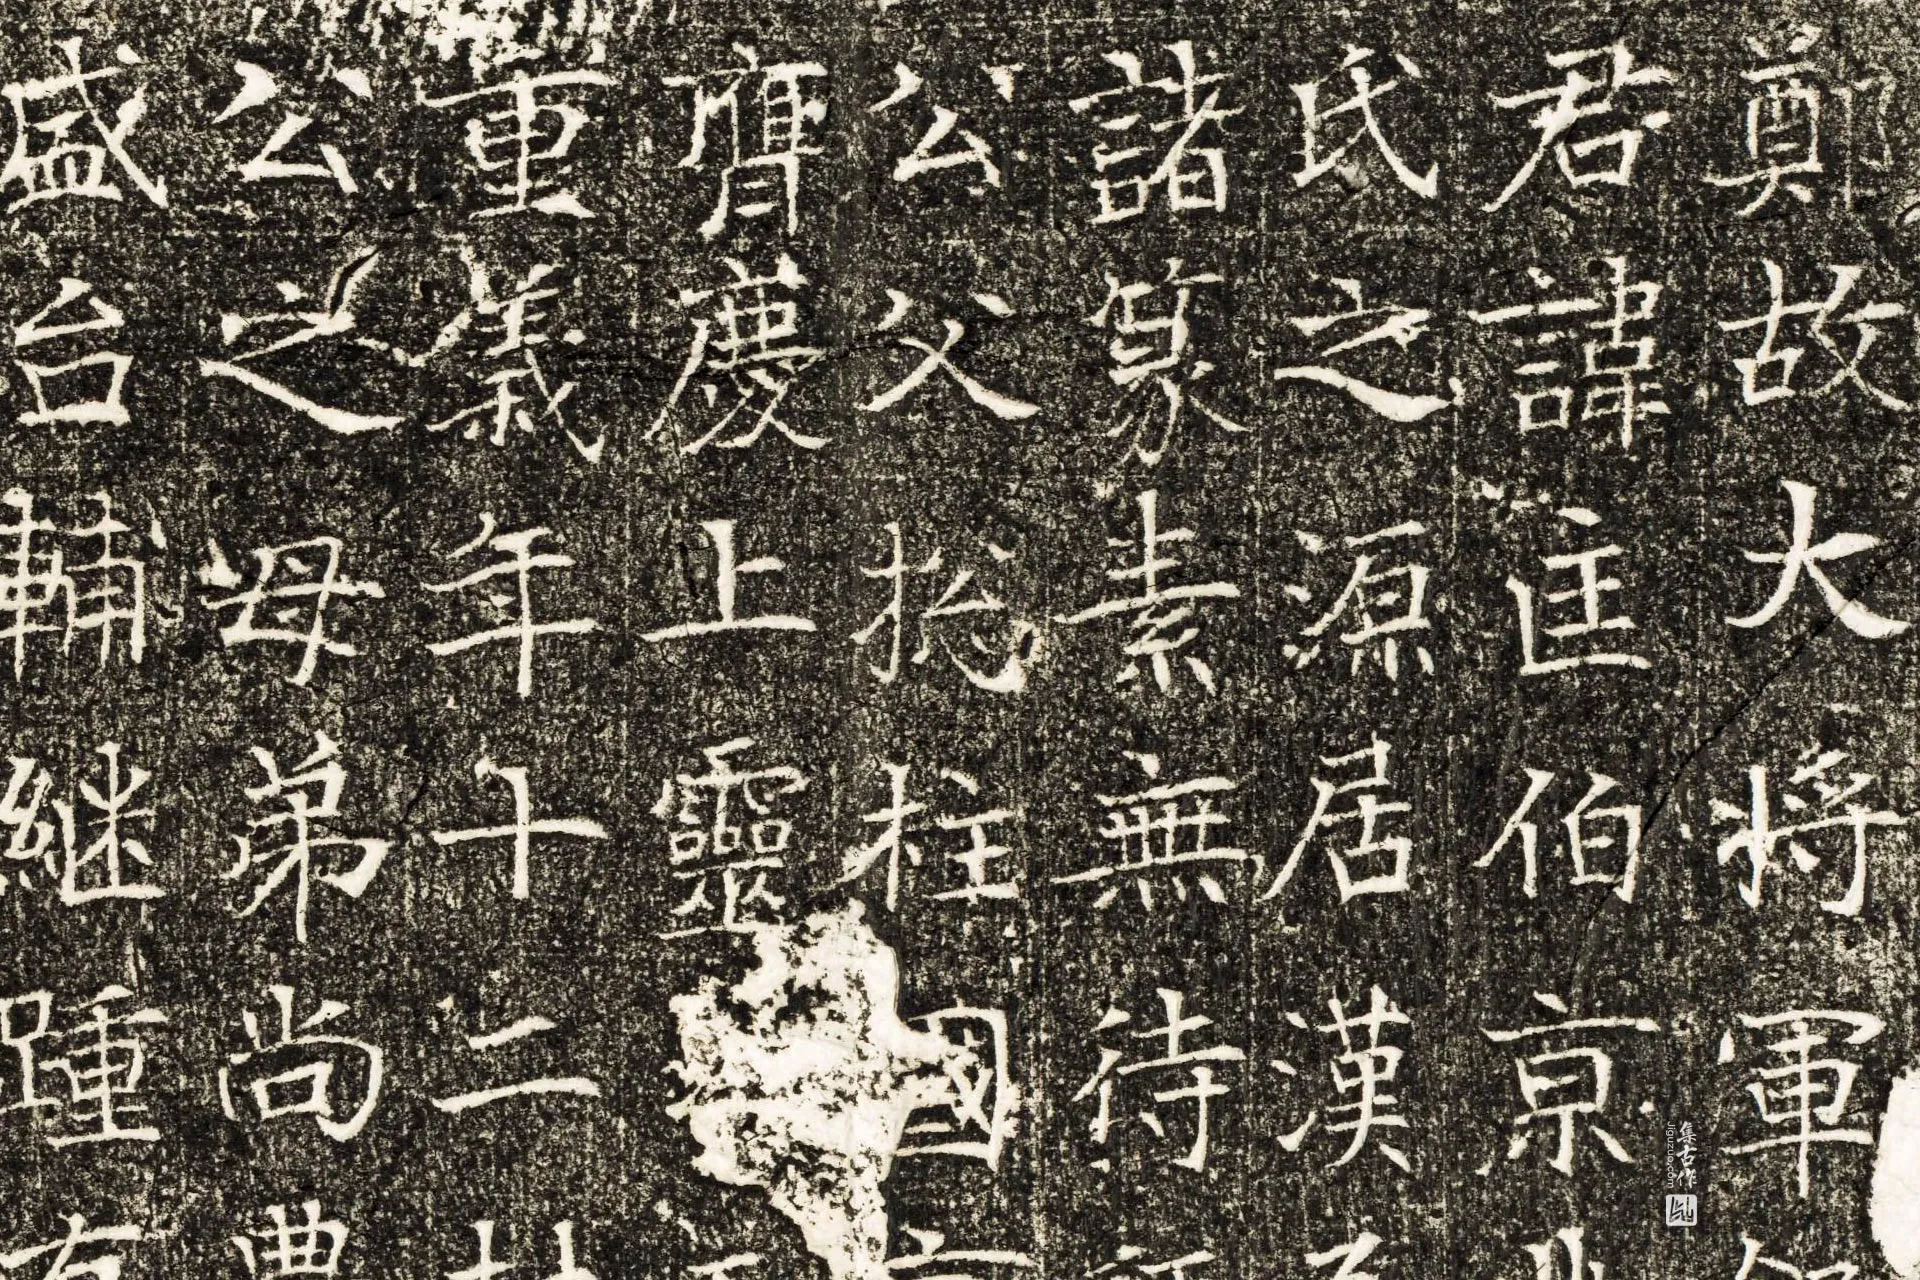 鄭故大将軍
君諱匡伯京
氏之源居漢
諸篆素無待
公父捴柱國
膺慶上靈
重羲年十二
公之母弟尚
盛台輔継踵
集古作
jiguzuo.com